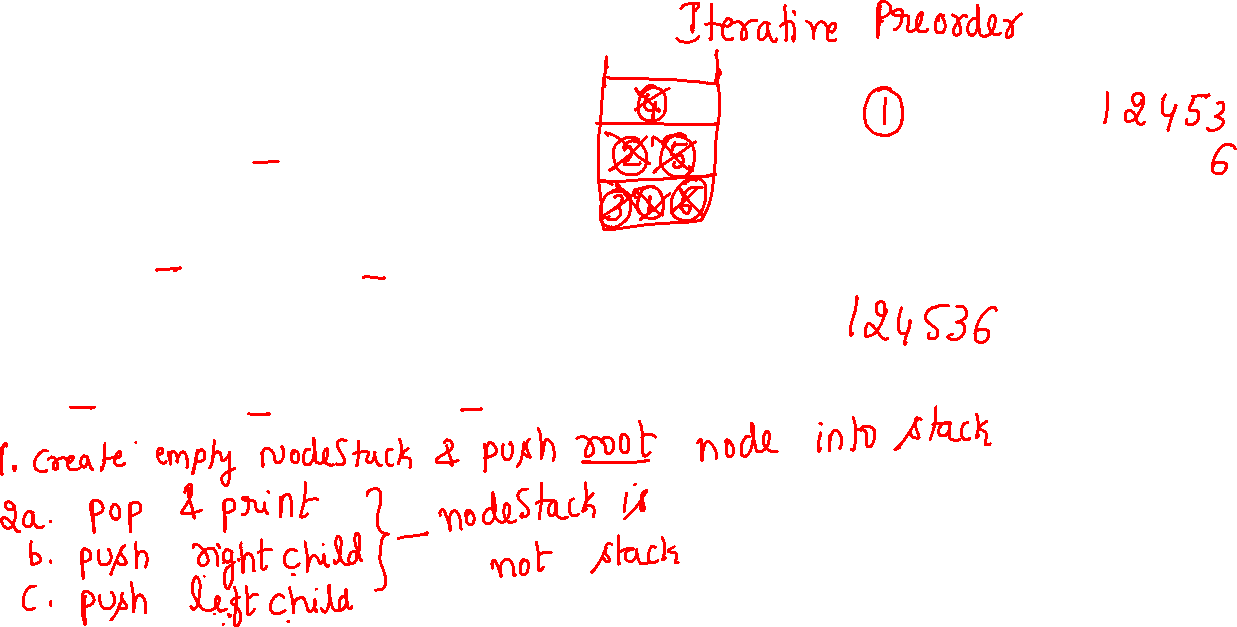 Iterative Preorder
4
2 5
3 1 6
1
12453
6
124536
1. create empty nodeStack & push root node into stack
2a. pop & print
b. push right child
c. push left child
nodeStack is
not stack